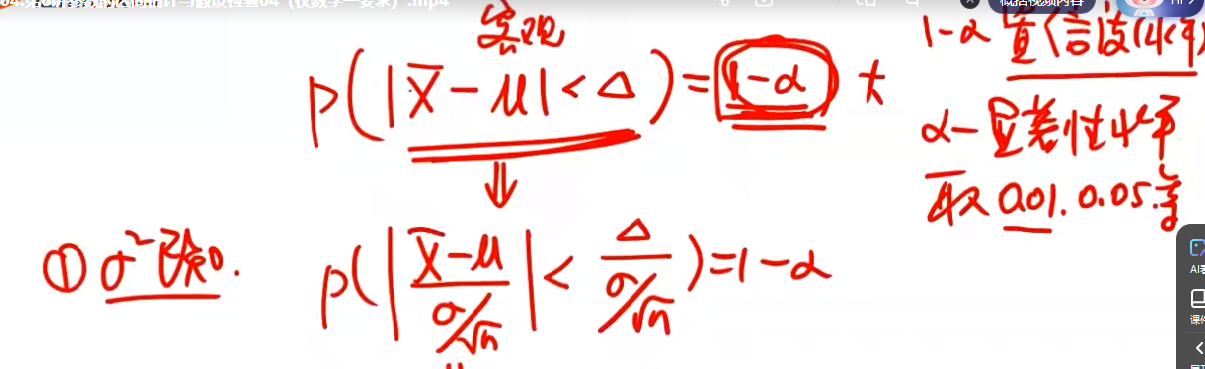 04.第四讲参数的区间估计与假设检验04（仅数学一要求）.mp4
概括视频内容
客观
P(|X̄-μ|<Δ)=1-α 大
1-α 置信度(水平)
α-显著性水平
取 0.01. 0.05.等
⇓
①σ²已知.
P(|(X̄-μ)/(σ/√n)|<Δ/(σ/√n))=1-α
AI看
课件